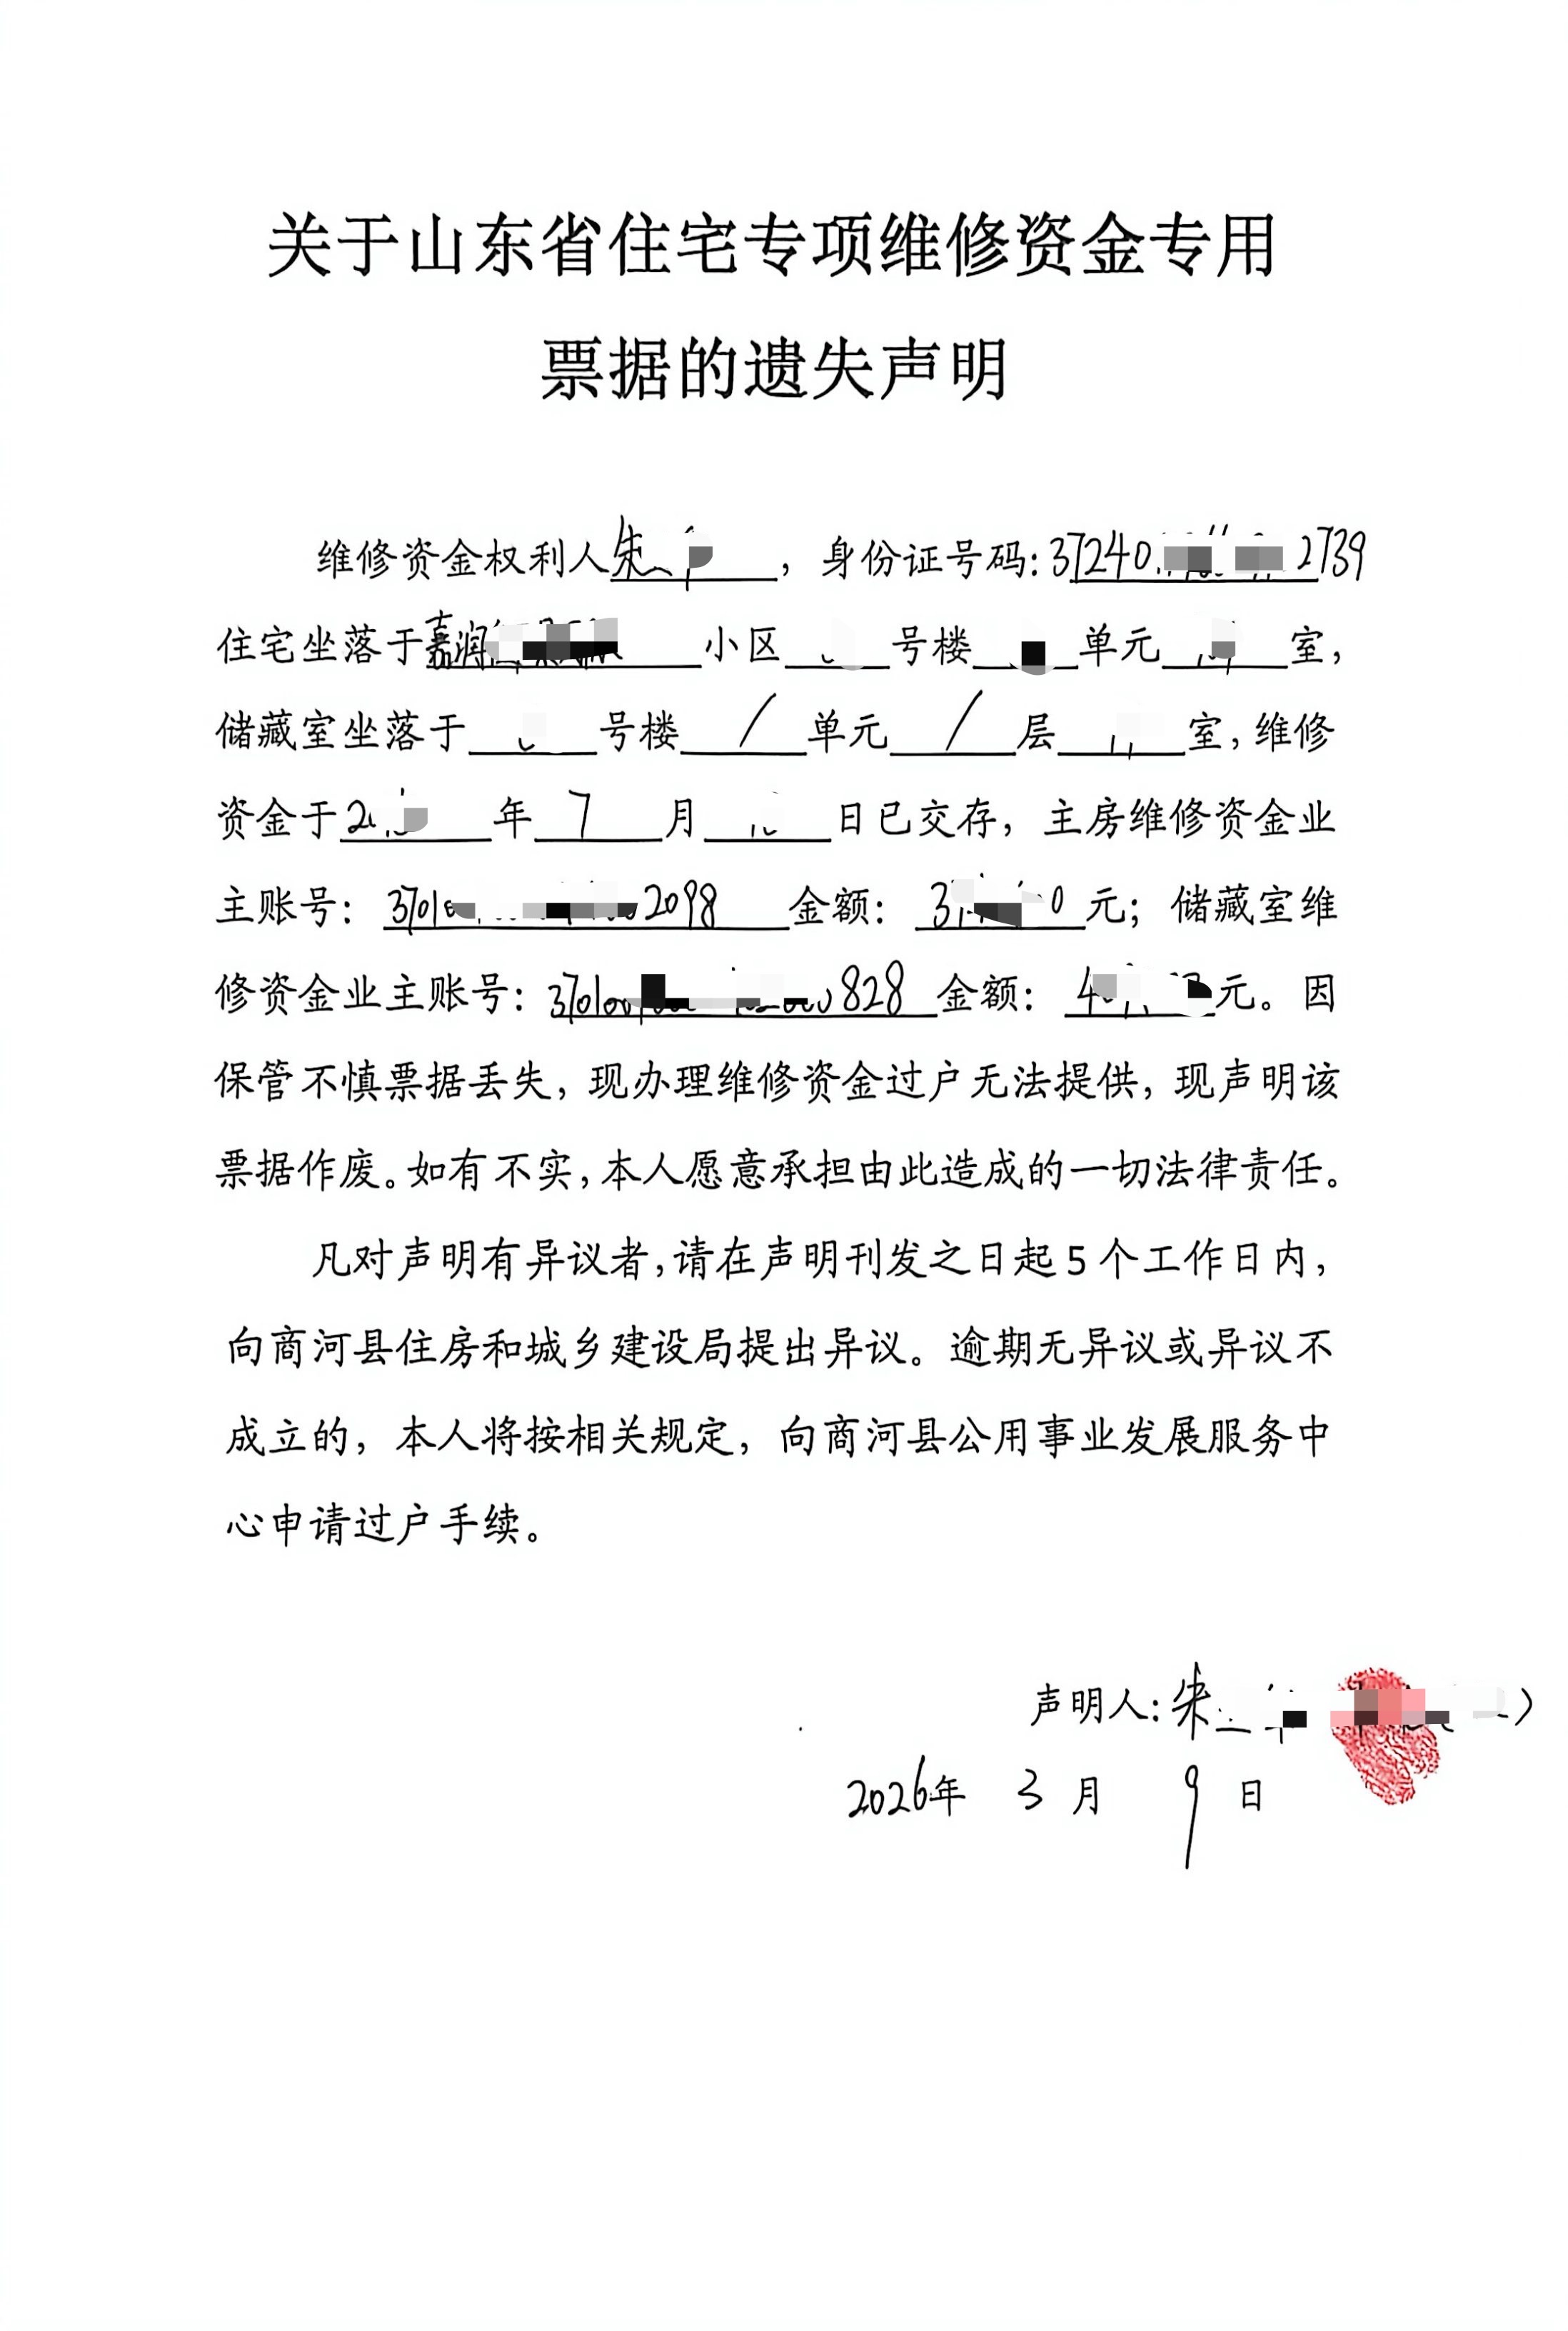 关于山东省住宅专项维修资金专用
票据的遗失声明
维修资金权利人朱，身份证号码：37240 2739
住宅坐落于嘉润 小区 号楼 单元 室，
储藏室坐落于 号楼 / 单元 / 层 室，维修
资金于 年 7 月 日已交存，主房维修资金业
主账号： 3701 2098 金额： 3 0 元；储藏室维
修资金业主账号：370100 828 金额： 4 元。因
保管不慎票据丢失，现办理维修资金过户无法提供，现声明该
票据作废。如有不实，本人愿意承担由此造成的一切法律责任。
凡对声明有异议者，请在声明刊发之日起 5 个工作日内，
向商河县住房和城乡建设局提出异议。逾期无异议或异议不
成立的，本人将按相关规定，向商河县公用事业发展服务中
心申请过户手续。
声明人：朱
2026年 3 月 9 日